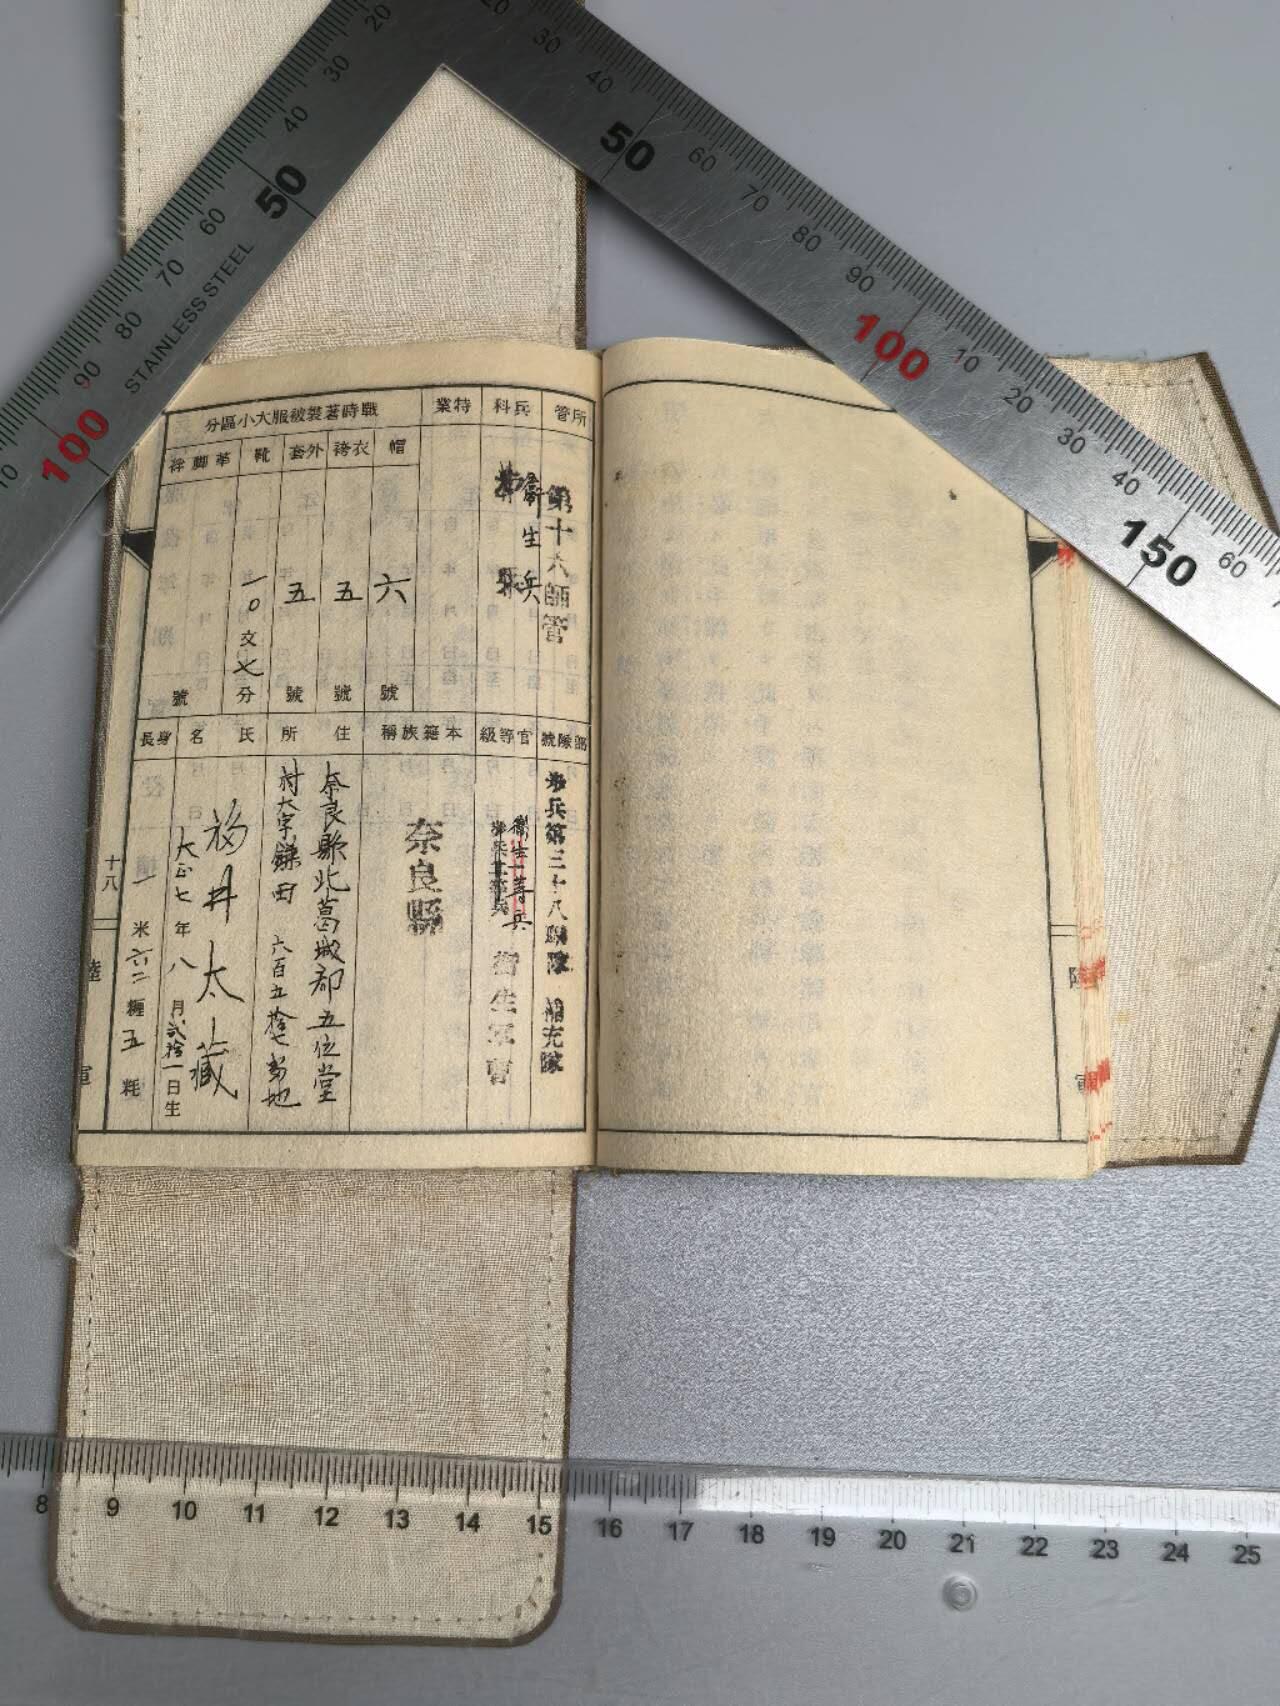 所管
第十六師管
兵科
歩兵
衞生兵
特業
戰時著裝被服大小區分
帽
六
號
衣袴
五
號
外套
五
號
靴
一〇文七分
革脚絆
號
部隊號
歩兵第三十八聯隊 補充隊
官等級
衞生一等兵
衞生軍曹
本籍族稱
奈良縣
住所
奈良縣北葛城郡五位堂
村大字鎌田 六百五拾七番地
氏名
福井太藏
大正七年八月貳拾一日生
身長
一米六二糎五粍
十八
陸軍
陸軍
STAINLESS STEEL
20 30 40 50 60 70 80 90 100 10
20 30 40 50 60 70 80 90 100 10 20 30 40 150 60
8 9 10 11 12 13 14 15 16 17 18 19 20 21 22 23 24 25